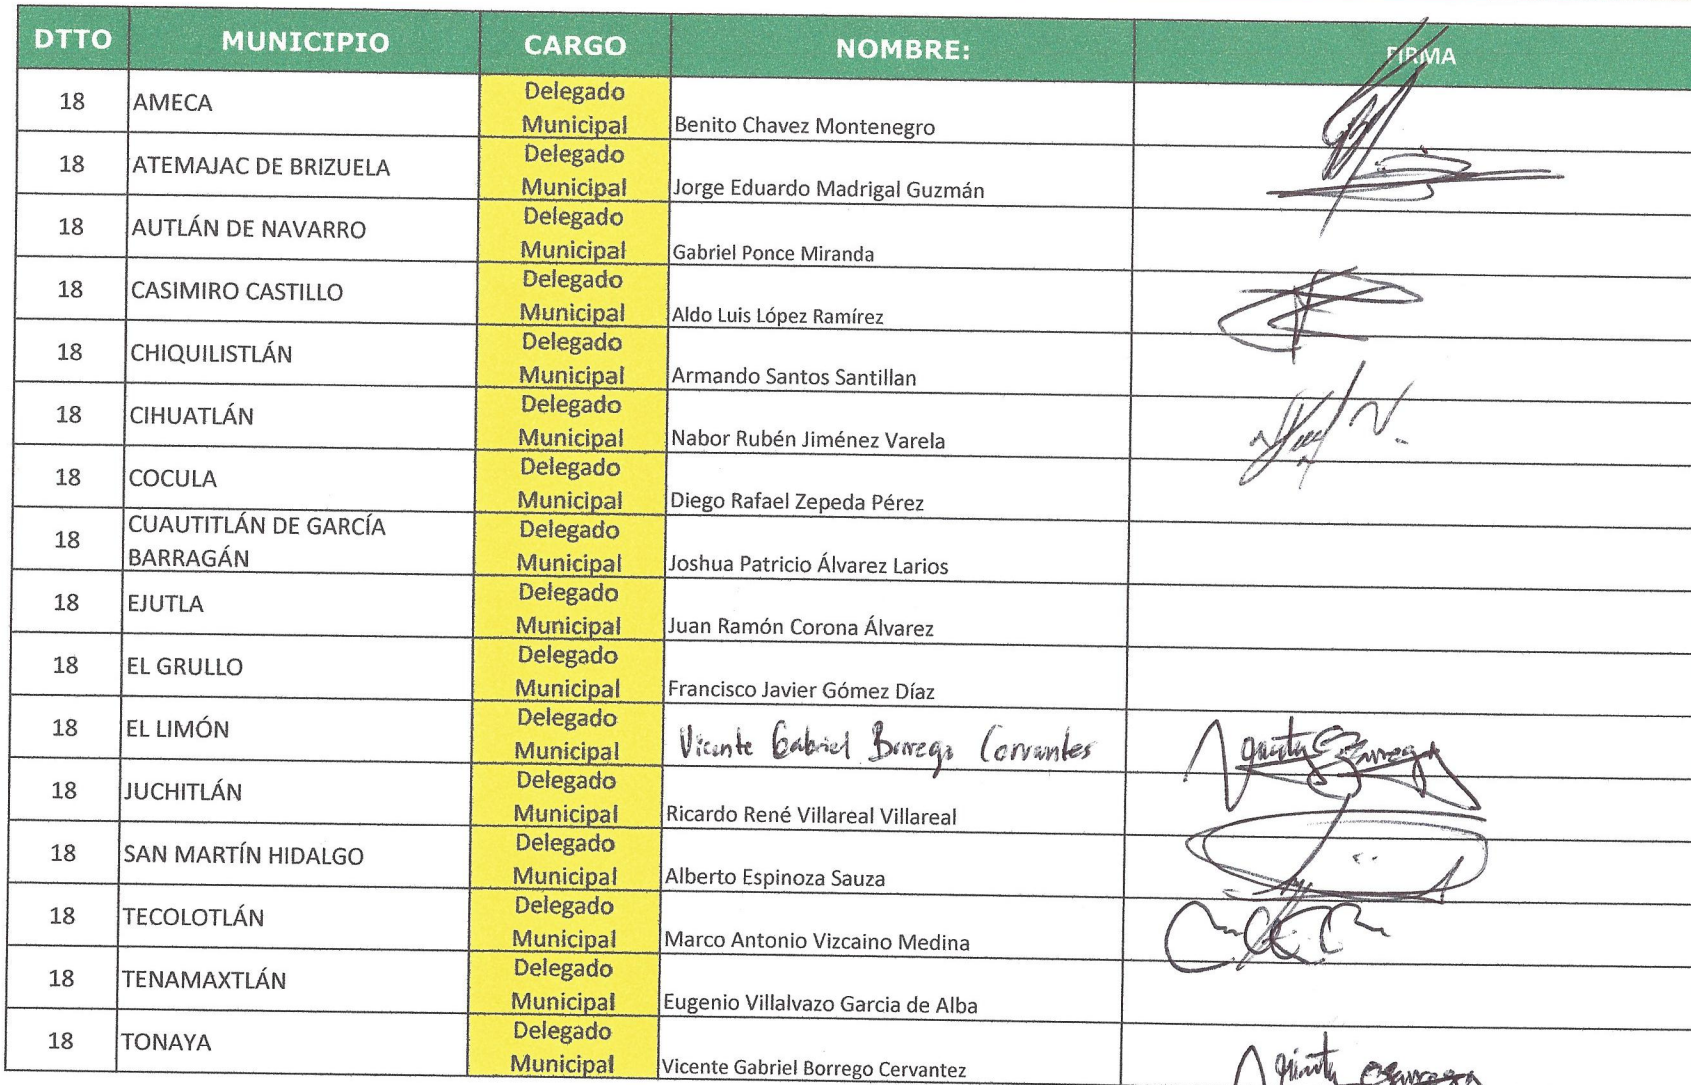 DTTO MUNICIPIO CARGO NOMBRE: FIRMA
18 AMECA Delegado Municipal Benito Chavez Montenegro
18 ATEMAJAC DE BRIZUELA Delegado Municipal Jorge Eduardo Madrigal Guzmán
18 AUTLÁN DE NAVARRO Delegado Municipal Gabriel Ponce Miranda
18 CASIMIRO CASTILLO Delegado Municipal Aldo Luis López Ramírez
18 CHIQUILISTLÁN Delegado Municipal Armando Santos Santillan
18 CIHUATLÁN Delegado Municipal Nabor Rubén Jiménez Varela
18 COCULA Delegado Municipal Diego Rafael Zepeda Pérez
18 CUAUTITLÁN DE GARCÍA BARRAGÁN Delegado Municipal Joshua Patricio Álvarez Larios
18 EJUTLA Delegado Municipal Juan Ramón Corona Álvarez
18 EL GRULLO Delegado Municipal Francisco Javier Gómez Díaz
18 EL LIMÓN Delegado Municipal Vicente Gabriel Borrego Cervantes
18 JUCHITLÁN Delegado Municipal Ricardo René Villareal Villareal
18 SAN MARTÍN HIDALGO Delegado Municipal Alberto Espinoza Sauza
18 TECOLOTLÁN Delegado Municipal Marco Antonio Vizcaino Medina
18 TENAMAXTLÁN Delegado Municipal Eugenio Villalvazo Garcia de Alba
18 TONAYA Delegado Municipal Vicente Gabriel Borrego Cervantez